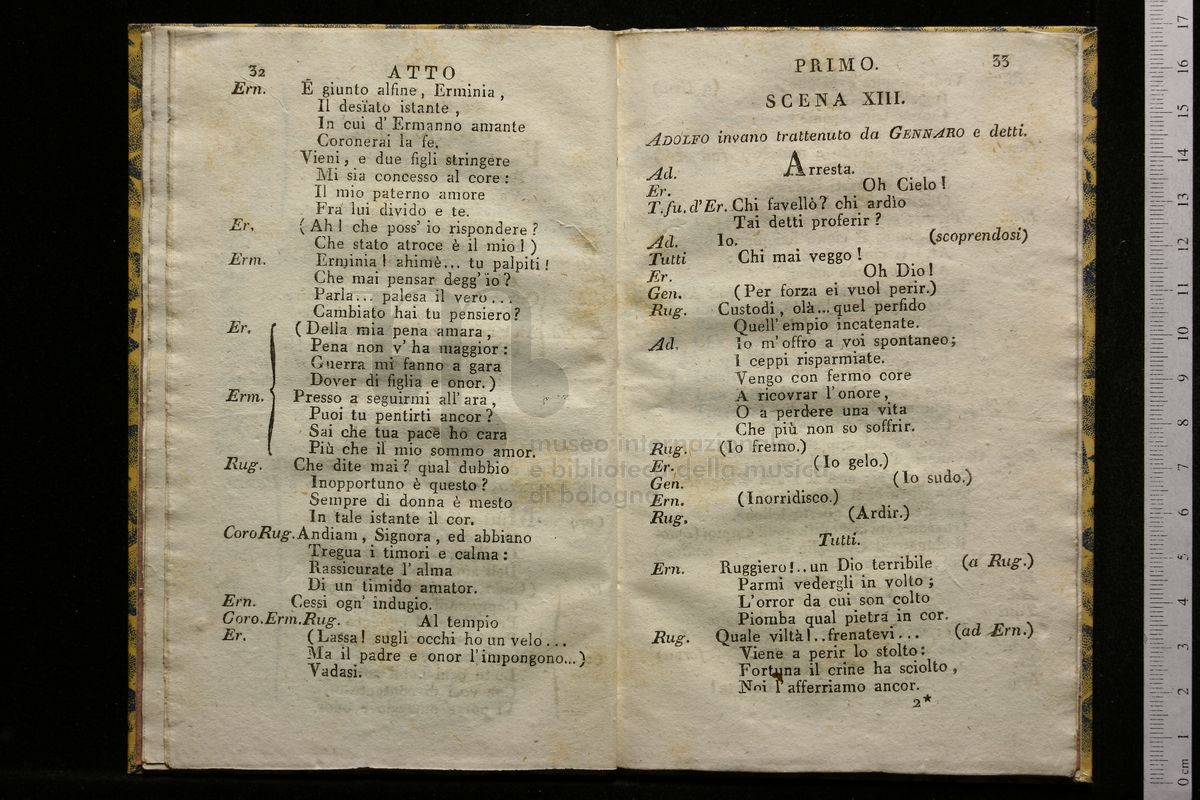 32 ATTO
Ern. È giunto alfine, Erminia,
Il desiato istante,
In cui d'Ermanno amante
Coronerai la fe.
Vieni, e due figli stringere
Mi sia concesso al core:
Il mio paterno amore
Fra lui divido e te.
Er. (Ah! che poss'io rispondere?
Che stato atroce è il mio!)
Erm. Erminia! ahimè... tu palpiti!
Che mai pensar degg'io?
Parla... palesa il vero...
Cambiato hai tu pensiero?
Er. (Della mia pena amara,
Pena non v'ha maggior:
Guerra mi fanno a gara
Dover di figlia e onor.)
Erm. Presso a seguirmi all'ara,
Puoi tu pentirti ancor?
Sai che tua pace ho cara
Più che il mio sommo amor.
Rug. Che dite mai? qual dubbio
Inopportuno è questo?
Sempre di donna è mesto
In tale istante il cor.
Coro Rug. Andiam, Signora, ed abbiano
Tregua i timori e calma:
Rassicurate l'alma
Di un timido amator.
Ern. Cessi ogn'indugio.
Coro. Erm. Rug. Al tempio
Er. (Lassa! sugli occhi ho un velo...
Ma il padre e onor l'impongono...)
Vadasi.
PRIMO. 33
SCENA XIII.
ADOLFO invano trattenuto da GENNARO e detti.
Ad. Arresta.
Er. Oh Cielo!
T. fu. d'Er. Chi favellò? chi ardìo
Tai detti proferir?
Ad. Io. (scoprendosi)
Tutti Chi mai veggo!
Er. Oh Dio!
Gen. (Per forza ei vuol perir.)
Rug. Custodi, olà... quel perfido
Quell'empio incatenate.
Ad. Io m'offro a voi spontaneo;
I ceppi risparmiate.
Vengo con fermo core
A ricovrar l'onore,
O a perdere una vita
Che più non so soffrir.
Rug. (Io fremo.)
Er. (Io gelo.)
Gen. (Io sudo.)
Ern. (Inorridisco.)
Rug. (Ardir.)
Tutti.
Ern. Ruggiero!.. un Dio terribile (a Rug.)
Parmi vedergli in volto;
L'orror da cui son colto
Piomba qual pietra in cor.
Rug. Quale viltà!.. frenatevi... (ad Ern.)
Viene a perir lo stolto:
Fortuna il crine ha sciolto,
Noi l'afferriamo ancor.
2*
museo internazionale
e biblioteca della musica
di bologna
17 16 15 14 13 12 11 10 9 8 7 6 5 4 3 2 1 0 cm